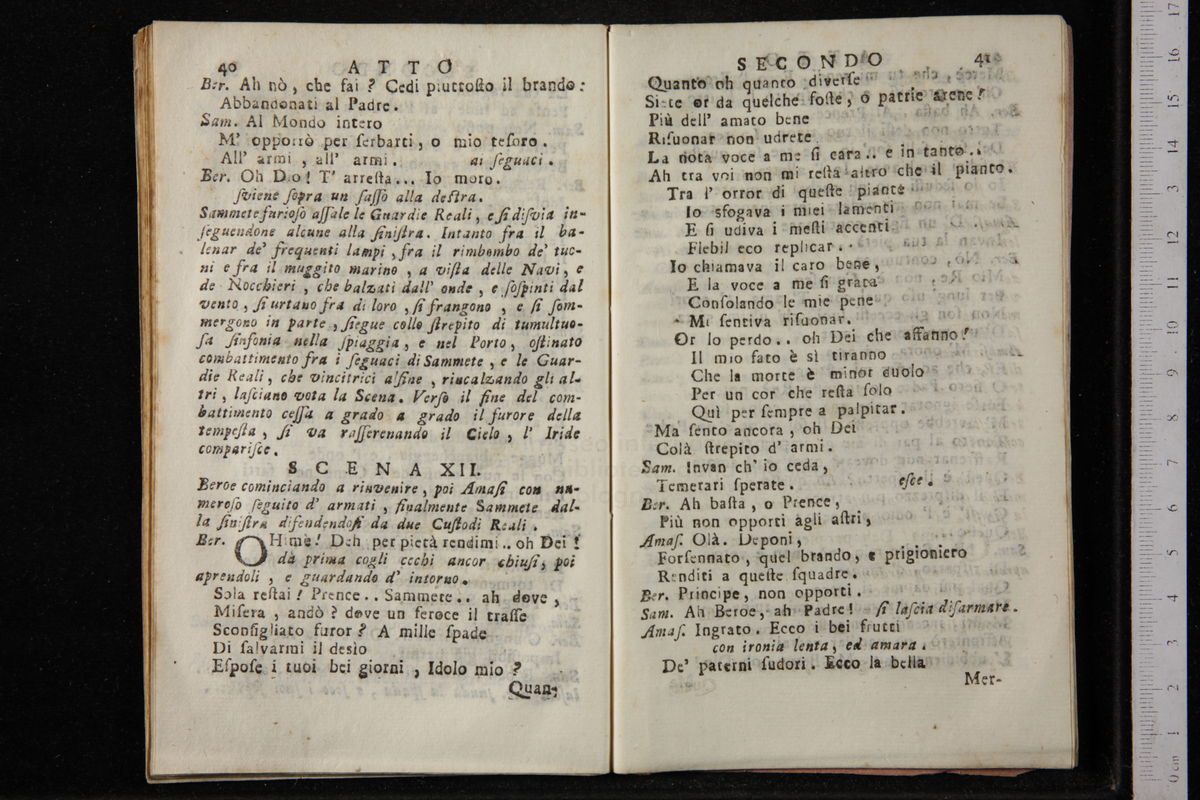 40 ATTO
Ber. Ah nò, che fai? Cedi piuttoſto il brando:
Abbandonati al Padre.
Sam. Al Mondo intero
M' opporrò per ſerbarti, o mio teſoro.
All' armi, all' armi. ai ſeguaci.
Ber. Oh Dio! T' arreſta... Io moro.
ſviene ſopra un ſaſſo alla deſtra.
Sammete furioſo aſſale le Guardie Reali, e ſi diſvia in-
ſeguendone alcune alla ſiniſtra. Intanto fra il ba-
lenar de' frequenti lampi, fra il rimbombo de' tuo-
ni e fra il muggito marino, a viſta delle Navi, e
de' Nocchieri, che balzati dall' onde, e ſoſpinti dal
vento, ſi urtano fra di loro, ſi frangono, e ſi ſom-
mergono in parte, ſiegue collo ſtrepito di tumultuo-
ſa ſinfonia nella ſpiaggia, e nel Porto, oſtinato
combattimento fra i ſeguaci di Sammete, e le Guar-
die Reali, che vincitrici alfine, rincalzando gli al-
tri, laſciano vota la Scena. Verſo il fine del com-
battimento ceſſa a grado a grado il furore della
tempeſta, ſi va raſſerenando il Cielo, l' Iride
compariſce.
SCENA XII.
Beroe cominciando a rinvenire, poi Amaſi con nu-
meroſo ſeguito d' armati, finalmente Sammete dal-
la ſiniſtra difendendoſi da due Cuſtodi Reali.
Ber. OHimè! Deh per pietà rendimi.. oh Dei!
da prima cogli occhi ancor chiuſi, poi
aprendoli, e guardando d' intorno.
Sola reſtai! Prence.. Sammete.. ah dove,
Miſera, andò? dove un feroce il traſſe
Sconſigliato furor? A mille ſpade
Di ſalvarmi il desìo
Eſpoſe i tuoi bei giorni, Idolo mio?
Quan-
SECONDO 41
Quanto oh quanto diverſe
Siete or da quelche foſte, o patrie arene!
Più dell' amato bene
Riſuonar non udrete
La nota voce a me ſi cara.. e in tanto..
Ah tra voi non mi reſta altro che il pianto.
Tra l' orror di queſte piante
Io sfogava i miei lamenti
E ſi udiva i meſti accenti
Flebil eco replicar..
Io chiamava il caro bene,
E la voce a me ſi grata
Conſolando le mie pene
Mi ſentiva riſuonar.
Or lo perdo.. oh Dei che affanno!
Il mio fato è sì tiranno
Che la morte è minor duolo
Per un cor che reſta ſolo
Quì per ſempre a palpitar.
Ma ſento ancora, oh Dei
Colà ſtrepito d' armi.
Sam. Invan ch' io ceda,
Temerari ſperate. eſce.
Ber. Ah baſta, o Prence,
Più non opporti agli aſtri,
Amaſ. Olà. Deponi,
Forſennato, quel brando, e prigioniero
Renditi a queſte ſquadre.
Ber. Principe, non opporti.
Sam. Ah Beroe, ah Padre! ſi laſcia diſarmare.
Amaſ. Ingrato. Ecco i bei frutti
con ironia lenta, ed amara.
De' paterni ſudori. Ecco la bella
Mer-
0 cm 1 2 3 4 5 6 7 8 9 10 11 12 13 14 15 16 17